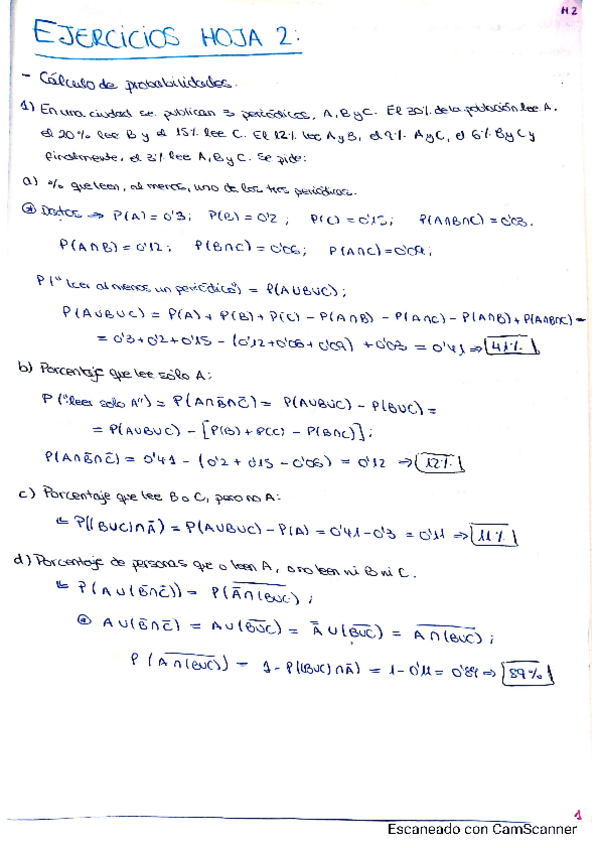 H2
EJERCICIOS HOJA 2:
- Cálculo de probabilidades.
1) En una ciudad se publican 3 periódicos, A, B y C. El 30% de la población lee A.
el 20% lee B y el 15% lee C. El 12% lee A y B, el 9% A y C, el 6% B y C y
finalmente, el 3% lee A, B y C. Se pide:
a) % que leen, al menos, uno de los tres periódicos.
⊛ Datos ⇒ P(A) = 0'3; P(B) = 0'2; P(C) = 0'15; P(A∩B∩C) = 0'03.
P(A∩B) = 0'12; P(B∩C) = 0'06; P(A∩C) = 0'09;
P("Leer al menos un periódico") = P(A∪B∪C);
P(A∪B∪C) = P(A) + P(B) + P(C) - P(A∩B) - P(A∩C) - P(A∩B) + P(A∩B∩C) =
= 0'3 + 0'2 + 0'15 - (0'12 + 0'06 + 0'09) + 0'03 = 0'41 ⇒ 41%
b) Porcentaje que lee sólo A:
P("leer solo A") = P(A∩B̄∩C̄) = P(A∪B∪C) - P(B∪C) =
= P(A∪B∪C) - [P(B) + P(C) - P(B∩C)];
P(A∩B̄∩C̄) = 0'41 - (0'2 + 0'15 - 0'06) = 0'12 → 12%
c) Porcentaje que lee B o C, pero no A:
P((B∪C)∩Ā) = P(A∪B∪C) - P(A) = 0'41 - 0'3 = 0'11 ⇒ 11%
d) Porcentaje de personas que o leen A, o no leen ni B ni C.
P(A∪(B̄∩C̄)) = P(\overline{Ā∩(B∪C)});
⊛ A∪(B̄∩C̄) = A∪(\overline{B∪C}) = Ā∪(\overline{B∪C}) = \overline{A∩(B∪C)};
P(\overline{A∩(B∪C)}) = 1 - P((B∪C)∩Ā) = 1 - 0'11 = 0'89 ⇒ 89%
1
Escaneado con CamScanner